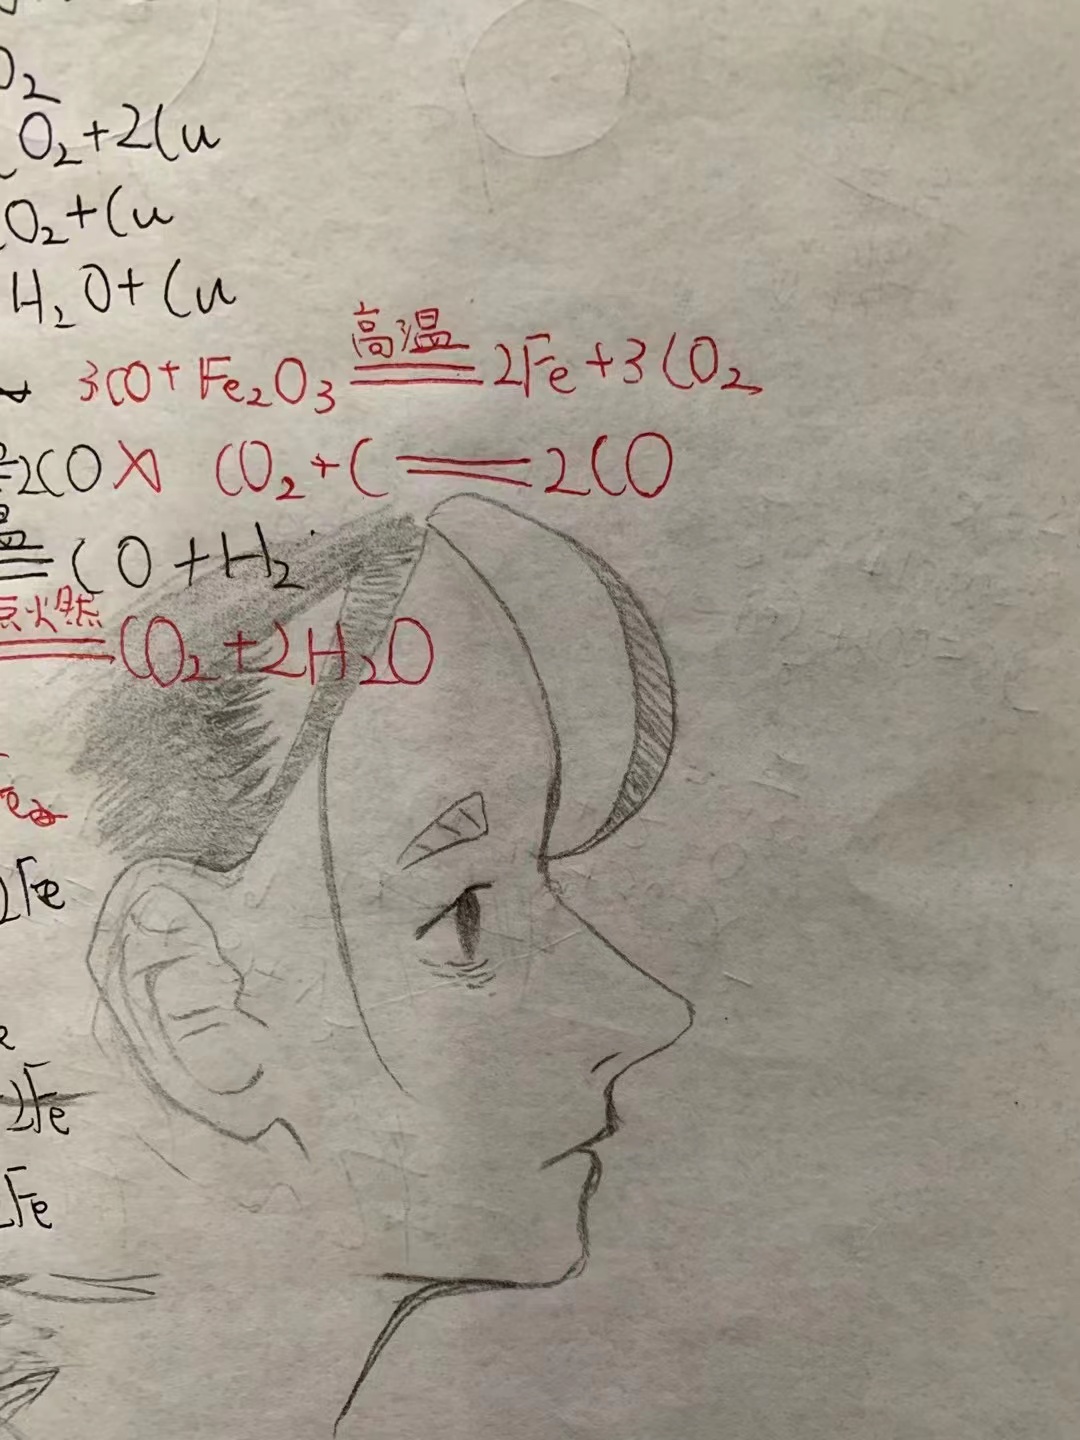 O₂
O₂+2Cu
O₂+Cu
H₂O+Cu
高温
3CO+Fe₂O₃══2Fe+3CO₂
=2CO CO₂+C══2CO
温
══CO+H₂
点燃
══CO₂+2H₂O
2Fe
e
2Fe
2Fe